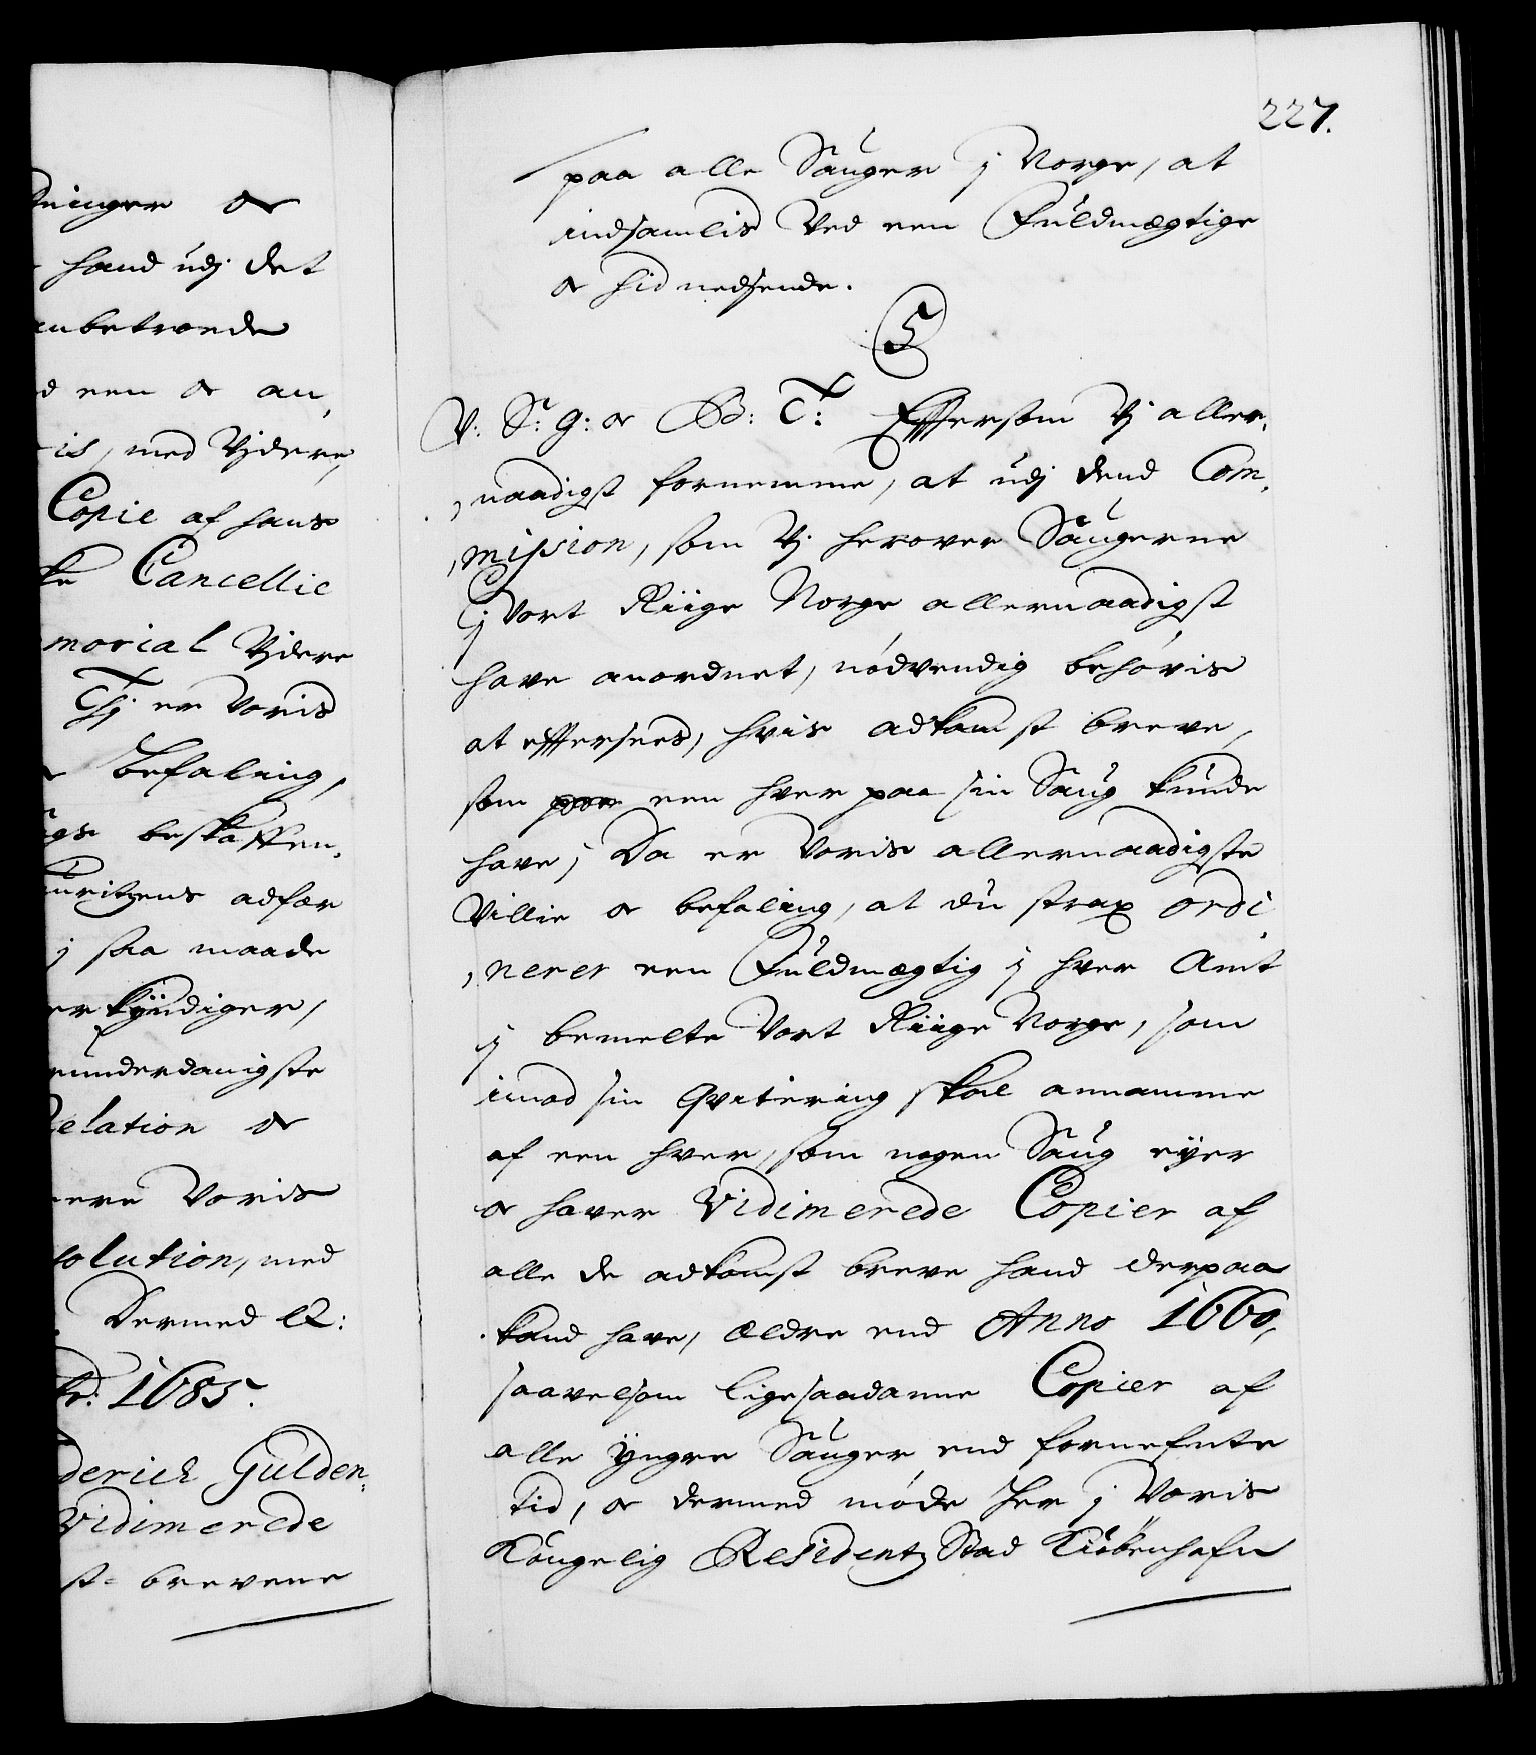 dninger og
hand udj det
anbetroede
d een og an,
is, med Vjdere,
Copie af hans
ke Cancellie
morial Vjdere
Thj er Voris
befaling,
gs beskaffen,
uritzens adfær
j saa maade
erkÿndiger,
underdanigste
Relation og
ere Voris
solution, med
Dermed etc:
br: 1685.
derich Gulden,
Vidimerede
st-brevene
227.
paa alle Sauger j Norge, at
indsamlis Ved een Fuldmægtige
og hid nedsende.
V: S: G: og B: T: Effersom Vj aller,
,naadigst fornemme, at udj dend Com,
,mission, som Vj herover Saugerne
j Vort Riige Norge allernaadigst
have anordnet, nødvendig behøvis
at effersees, hvis adkomst breve,
som een hver paa sin Saug kunde
have, Da er Voris allernaadigste
Villie og befaling, at du strax ordi
,nerer een Fuldmægtig j hver Amt
j bemelte Vort Riige Norge, som
imod sin qvitering skal annamme
af een hver, som nogen Saug eÿer
og haver Vidimerede Copier af
alle de adkomst breve hand derpaa
kand have, ældre end Anno 1660,
saavelsom ligesaadanne Copier af
alle ÿngre Sauger end fornefnte
tid, og dermed møde her j Voris
Kongelig Residentz Stad Kiøbenhafn